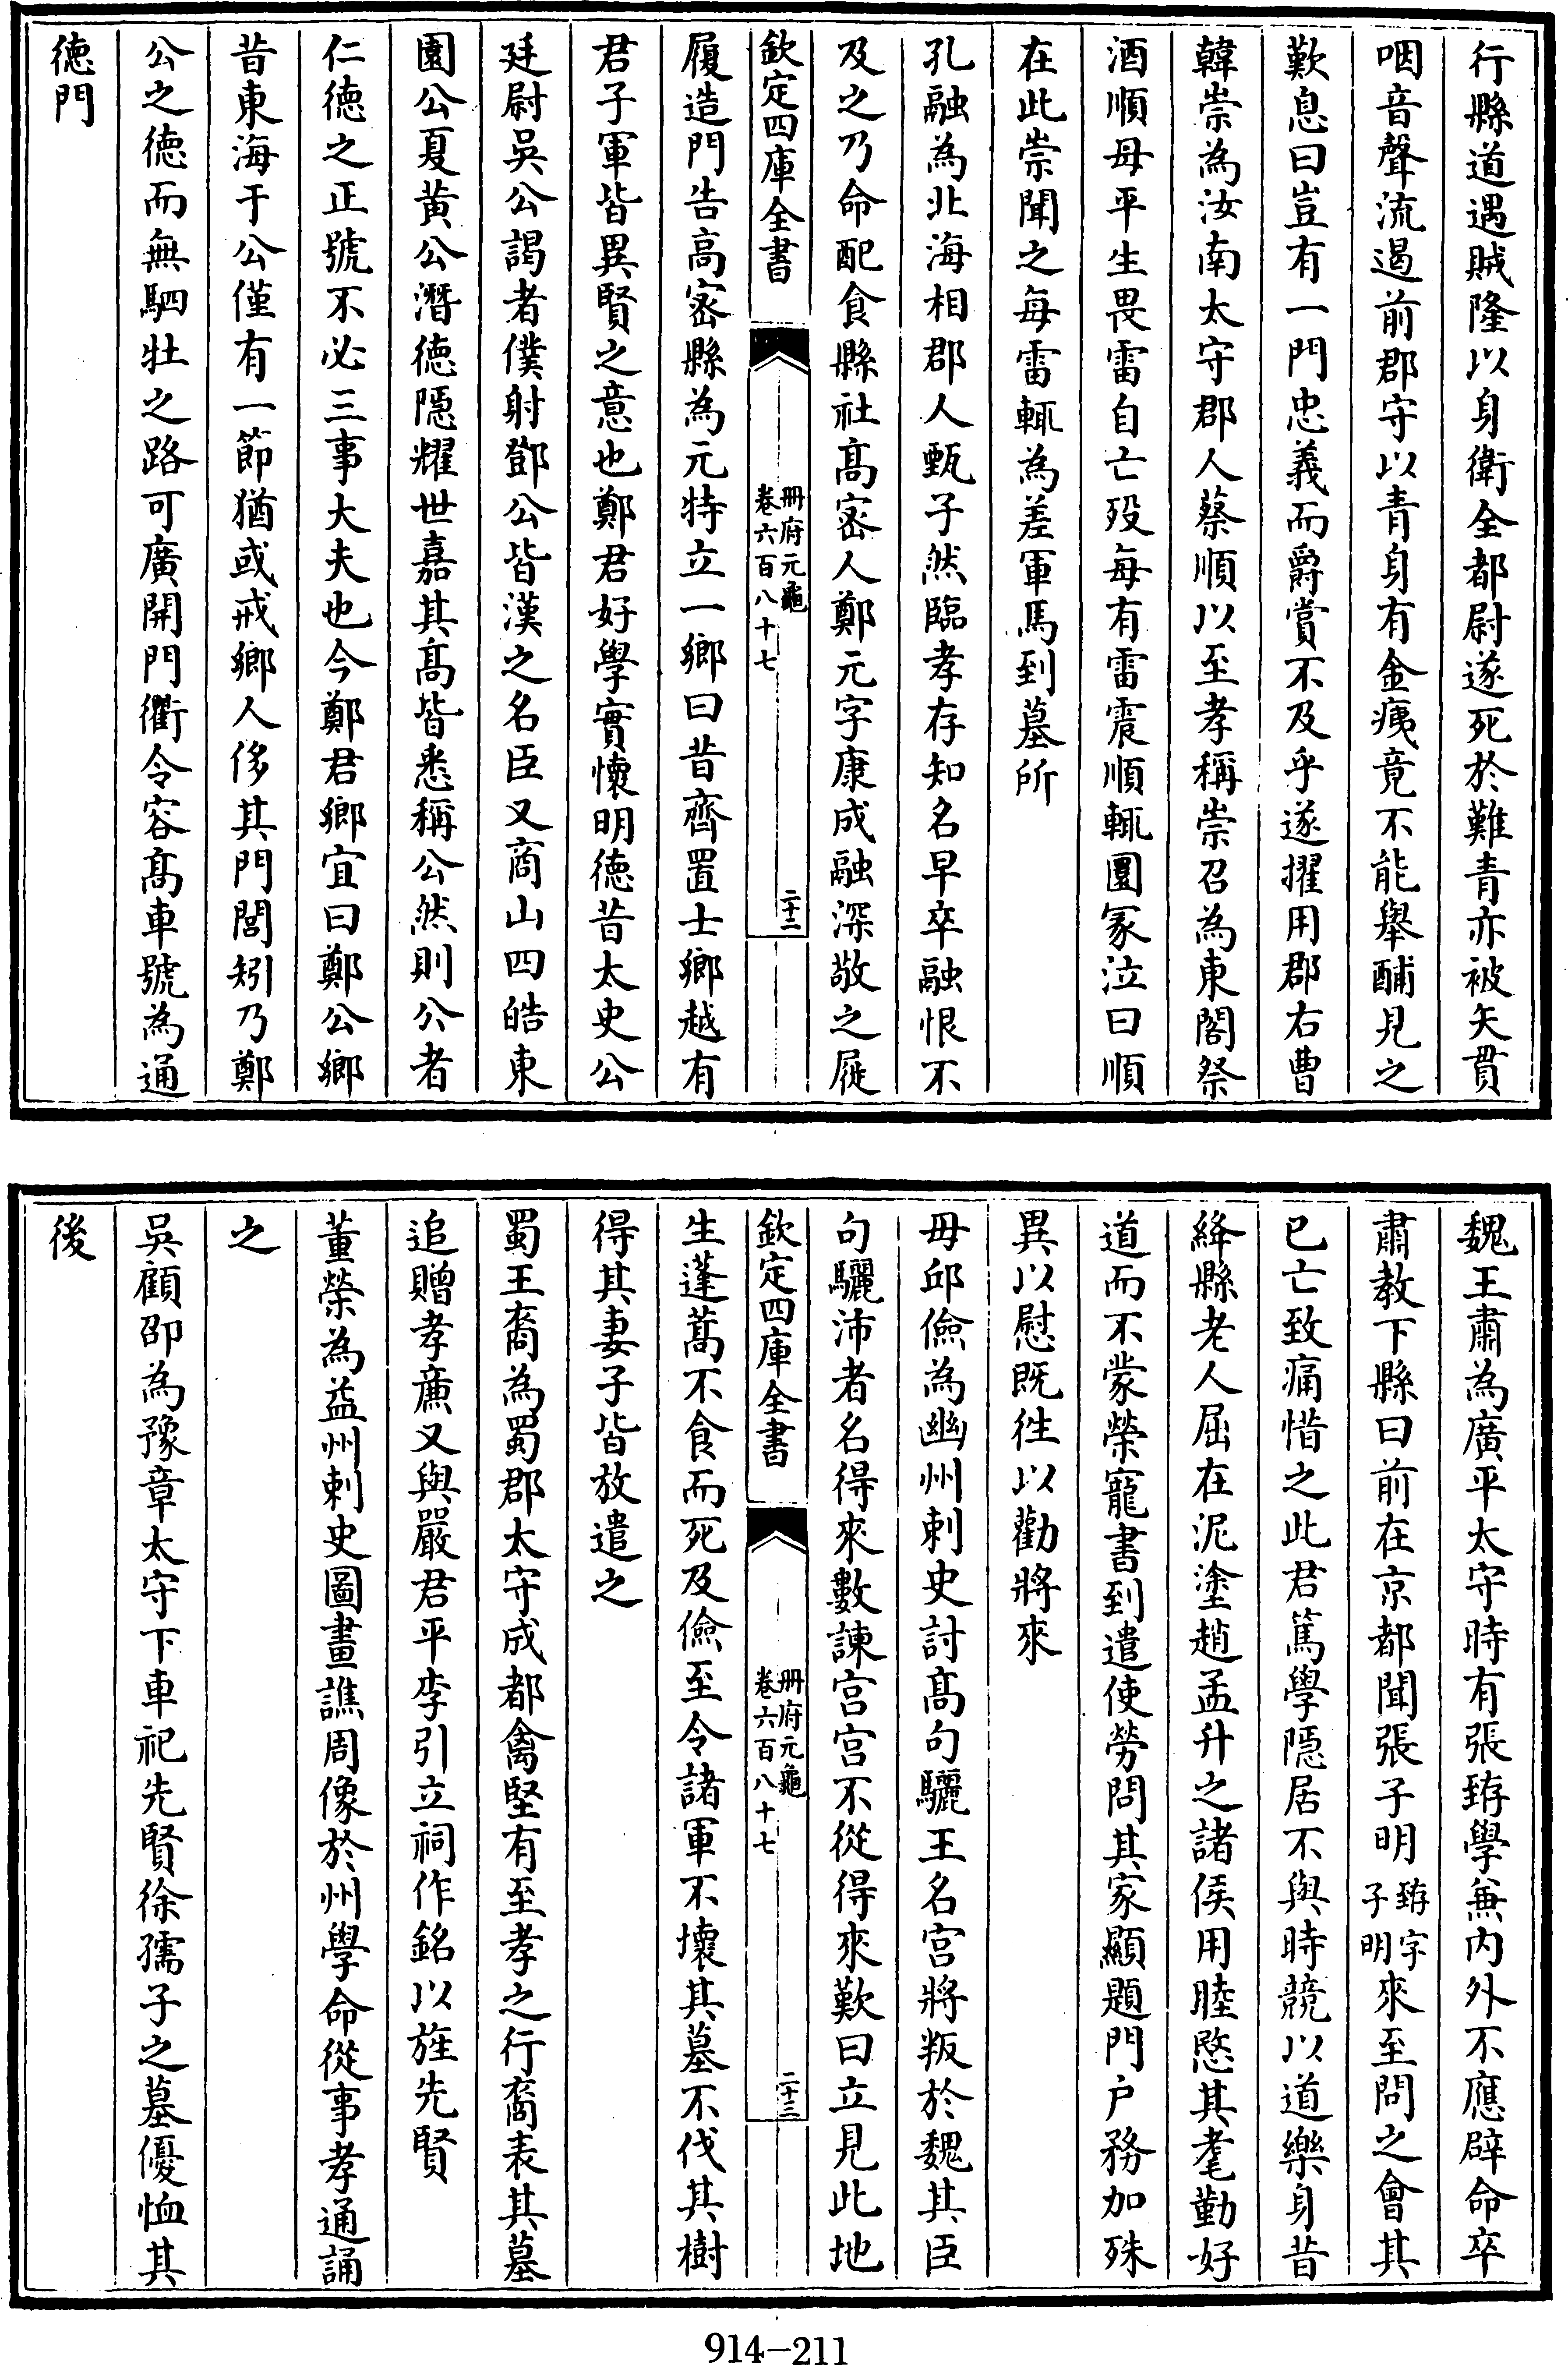 行縣道遇賊隆以身衛全都尉遂死於難青亦被矢貫
咽音聲流遏前郡守以青身有金痍竟不能舉酺見之
歎息曰豈有一門忠義而爵賞不及乎遂擢用郡右曹
韓崇為汝南太守郡人蔡順以至孝稱崇召為東閣祭
酒順母平生畏雷自亡歿每有雷震順輒圜冢泣曰順
在此崇聞之每雷輒為差軍馬到墓所
孔融為北海相郡人甄子然臨孝存知名早卒融恨不
及之乃命配食縣社髙宻人鄭元字康成融深敬之屣
欽定四庫全書
冊府元龜
卷六百八十七
二十二
履造門告高宻縣為元特立一鄉曰昔齊置士鄉越有
君子軍皆異賢之意也鄭君好學實懷明徳昔太史公
廷尉吳公謁者僕射鄧公皆漢之名臣又商山四皓東
園公夏黄公潛徳隠耀世嘉其髙皆悉稱公然則公者
仁徳之正號不必三事大夫也今鄭君鄉宜曰鄭公鄉
昔東海于公僅有一節猶或戒鄉人侈其門閭矧乃鄭
公之徳而無駟牡之路可廣開門衢令容髙車號為通
徳門
魏王肅為廣平太守時有張臶學兼内外不應辟命卒
肅教下縣曰前在京都聞張子明臶字子明來至問之會其
已亡致痛惜之此君篤學隠居不與時競以道樂身昔
絳縣老人屈在泥塗趙孟升之諸侯用睦愍其耄勤好
道而不蒙榮寵書到遣使勞問其家顯題門户務加殊
異以慰既往以勸將來
毋邱儉為幽州刺史討髙句驪王名宫將叛於魏其臣
句驪沛者名得來數諫宫宫不從得來歎曰立見此地
欽定四庫全書
冊府元龜
卷六百八十七
二十三
生蓬蒿不食而死及儉至令諸軍不壞其墓不伐其樹
得其妻子皆放遣之
蜀王裔為蜀郡太守成都禽堅有至孝之行裔表其墓
追贈孝亷又與嚴君平李引立祠作銘以旌先賢
董榮為益州刺史圖畫譙周像於州學命從事孝通誦
之
吳顧邵為豫章太守下車祀先賢徐孺子之墓優恤其
後
914-211